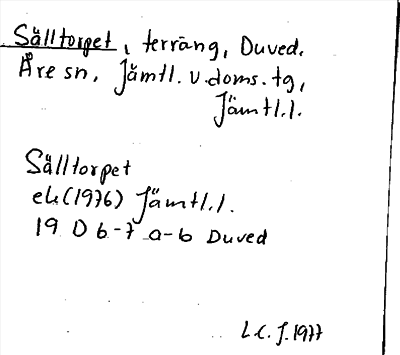 Sålltorpet, terräng, Duved.
Åre sn, Jämtl. v. doms. tg,
Jämtl.l.
Sålltorpet
ek (1976) Jämtl.l.
19 D 6-7 a-b Duved
L.C.J. 1977